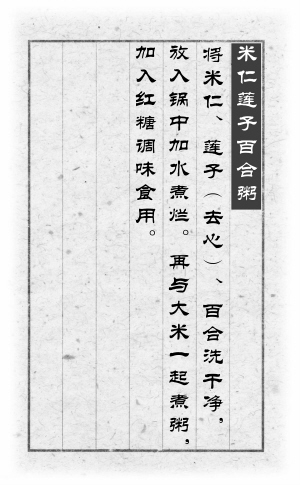 米仁莲子百合粥
将米仁、莲子（去心）、百合洗干净，
放入锅中加水煮烂。再与大米一起煮粥，
加入红糖调味食用。